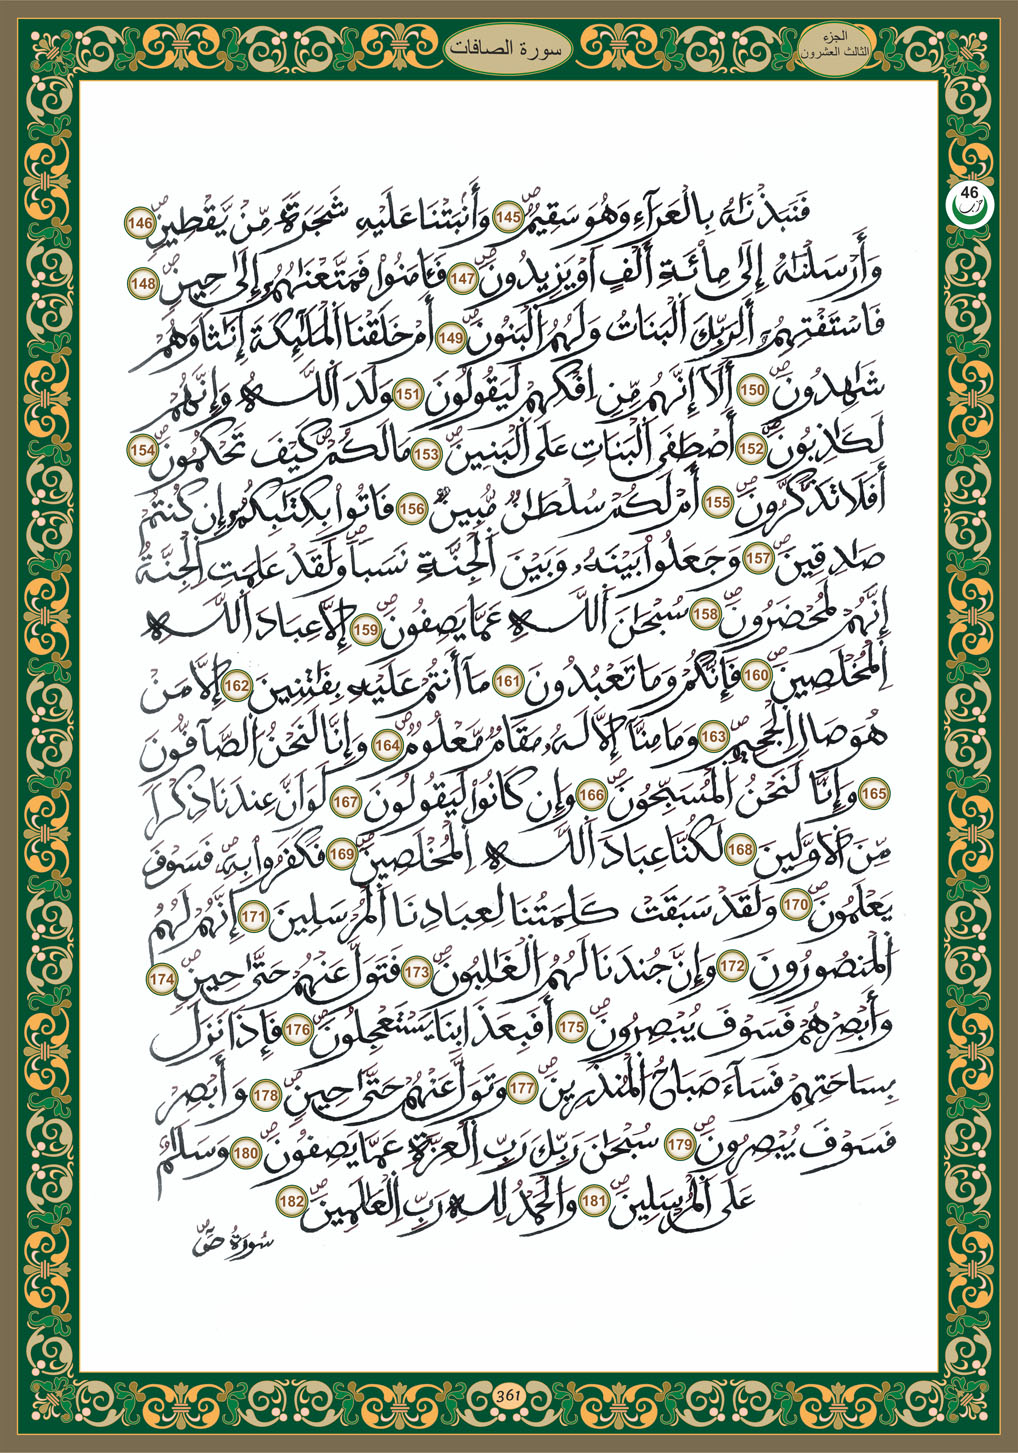 سورة الصافات
الجزء
الثالث العشرون
46
حزب
فَنَبَذْنَٰهُ بِالْعَرَآءِ وَهُوَ سَقِيمٌ 145 وَأَنۢبَتْنَا عَلَيْهِ شَجَرَةً مِّنْ يَّقْطِينٍ 146
وَأَرْسَلْنَٰهُ إِلَىٰ مِاْئَةِ أَلْفٍ أَوْ يَزِيدُونَ 147 فَـَٔامَنُواْ فَمَتَّعْنَٰهُمُۥٓ إِلَىٰ حِينٍ 148
فَاسْتَفْتِهِمُۥٓ أَلِرَبِّكَ اَ۬لْبَنَاتُ وَلَهُمُ اُ۬لْبَنُونَ 149 أَمْ خَلَقْنَا اَ۬لْمَلَٰٓئِكَةَ إِنَٰثاً وَهُمْ
شَٰهِدُونَ 150 أَلَآ إِنَّهُم مِّنِ اِفْكِهِمْ لَيَقُولُونَ 151 وَلَدَ اَ۬للَّهُ وَإِنَّهُمْ
لَكَٰذِبُونَ 152 أَصْطَفَى اَ۬لْبَنَاتِ عَلَى اَ۬لْبَنِينَ 153 مَا لَكُمْ كَيْفَ تَحْكُمُونَ 154
أَفَلَا تَذَّكَّرُونَ 155 أَمْ لَكُمْ سُلْطَٰنٌ مُّبِينٌ 156 فَاتُواْ بِكِتَٰبِكُمُۥٓ إِن كُنتُمْ
صَٰدِقِينَ 157 وَجَعَلُواْ بَيْنَهُۥ وَبَيْنَ اَ۬لْجِنَّةِ نَسَباً وَلَقَدْ عَلِمَتِ اِ۬لْجِنَّةُ
إِنَّهُمْ لَمُحْضَرُونَ 158 سُبْحَٰنَ اَ۬للَّهِ عَمَّا يَصِفُونَ 159 إِلَّا عِبَادَ اَ۬للَّهِ
اِ۬لْمُخْلَصِينَ 160 فَإِنَّكُمْ وَمَا تَعْبُدُونَ 161 مَآ أَنتُمْ عَلَيْهِ بِفَٰتِنِينَ 162 إِلَّا مَنْ
هُوَ صَالِ اِ۬لْجَحِيمِ 163 وَمَا مِنَّآ إِلَّا لَهُۥ مَقَامٌ مَّعْلُومٌ 164 وَإِنَّا لَنَحْنُ اُ۬لصَّآفُّونَ
165 وَإِنَّا لَنَحْنُ اُ۬لْمُسَبِّحُونَ 166 وَإِن كَانُواْ لَيَقُولُونَ 167 لَوَ اَنَّ عِندَنَا ذِكْراً
مِّنَ اَ۬لَاوَّلِينَ 168 لَكُنَّا عِبَادَ اَ۬للَّهِ اِ۬لْمُخْلَصِينَ 169 فَكَفَرُواْ بِهِۦ فَسَوْفَ
يَعْلَمُونَ 170 وَلَقَدْ سَبَقَتْ كَلِمَتُنَا لِعِبَادِنَا اَ۬لْمُرْسَلِينَ 171 إِنَّهُمْ لَهُمُ
اُ۬لْمَنصُورُونَ 172 وَإِنَّ جُندَنَا لَهُمُ اُ۬لْغَٰلِبُونَ 173 فَتَوَلَّ عَنْهُمْ حَتَّىٰ حِينٍ 174
وَأَبْصِرْهُمْ فَسَوْفَ يُبْصِرُونَ 175 أَفَبِعَذَابِنَا يَسْتَعْجِلُونَ 176 فَإِذَا نَزَلَ
بِسَاحَتِهِمْ فَسَآءَ صَبَاحُ اُ۬لْمُنذَرِينَ 177 وَتَوَلَّ عَنْهُمْ حَتَّىٰ حِينٍ 178 وَأَبْصِرْ
فَسَوْفَ يُبْصِرُونَ 179 سُبْحَٰنَ رَبِّكَ رَبِّ اِ۬لْعِزَّةِ عَمَّا يَصِفُونَ 180 وَسَلَٰمٌ
عَلَى اَ۬لْمُرْسَلِينَ 181 وَالْحَمْدُ لِلهِ رَبِّ اِ۬لْعَٰلَمِينَ 182
سُورَةُ صٓ
361